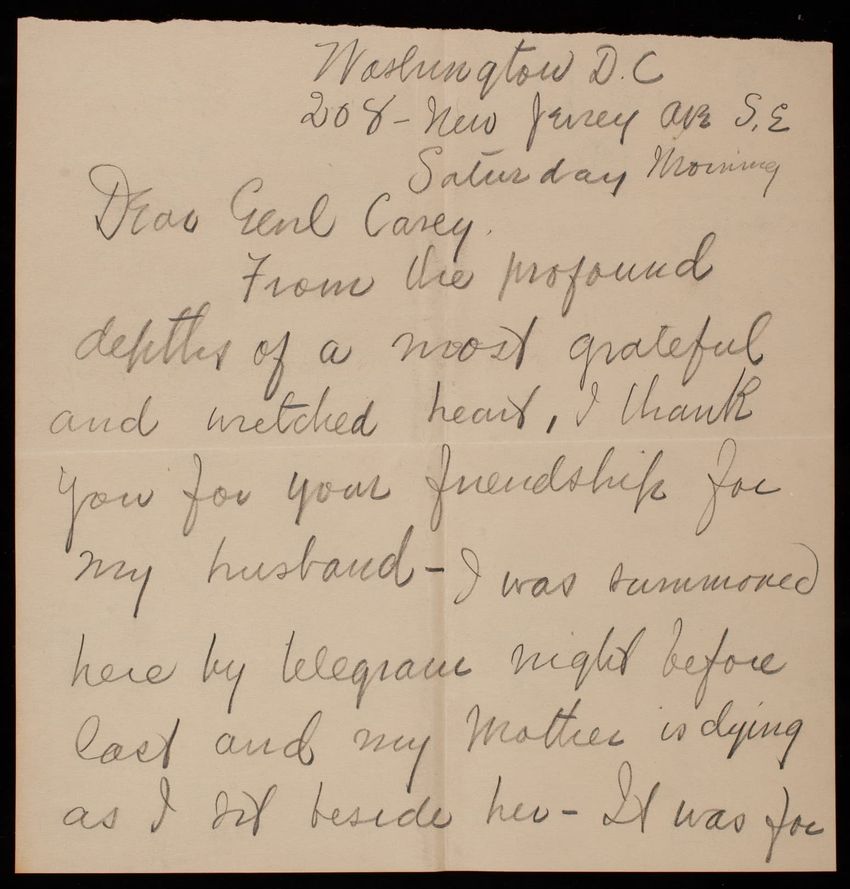 Washington D.C
208 - New Jersey Ave S.E
Saturday Morning
Dear Genl Casey.
From the profound
depths of a most grateful
and wretched heart, I thank
you for your friendship for
my husband - I was summoned
here by telegram night before
last and my Mother is dying
as I sit beside her - It was for